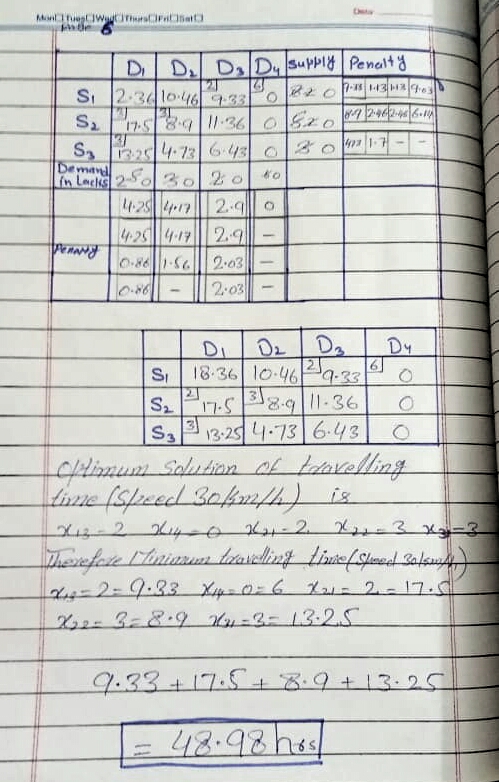 Mon Tues Wed Thurs Fri Sat
Date
D1 D2 D3 D4 Supply Penalty
S1 2.36 10.46 2 9.33 6 0 8 2 0 9.33 1.13 1.13 9.03
S2 3 17.5 3 8.9 11.36 0 5 2 0 8.9 2.46 2.46 6.14
S3 3 13.25 4.73 6.43 0 3 0 1.7 – –
Demand in Lacks 2 5 0 3 0 2 0
Penalty
4.25 4.17 2.9 0
4.25 4.17 2.9 –
0.86 1.56 2.03 –
0.86 – 2.03 –
D1 D2 D3 D4
S1 18.36 10.46 2 9.33 6 0
S2 2 17.5 3 8.9 11.36 0
S3 3 13.25 4.73 6.43 0
Optimum Solution of travelling
time (Speed 30 km/h) is
x13=2 x14=0 x21=2 x22=3 x31=3
Therefore Minimum travelling time (Speed 30km/h)
x13=2=9.33 x14=0=6 x21=2=17.5
x22=3=8.9 x31=3=13.25
9.33+17.5+8.9+13.25
= 48.98 hrs